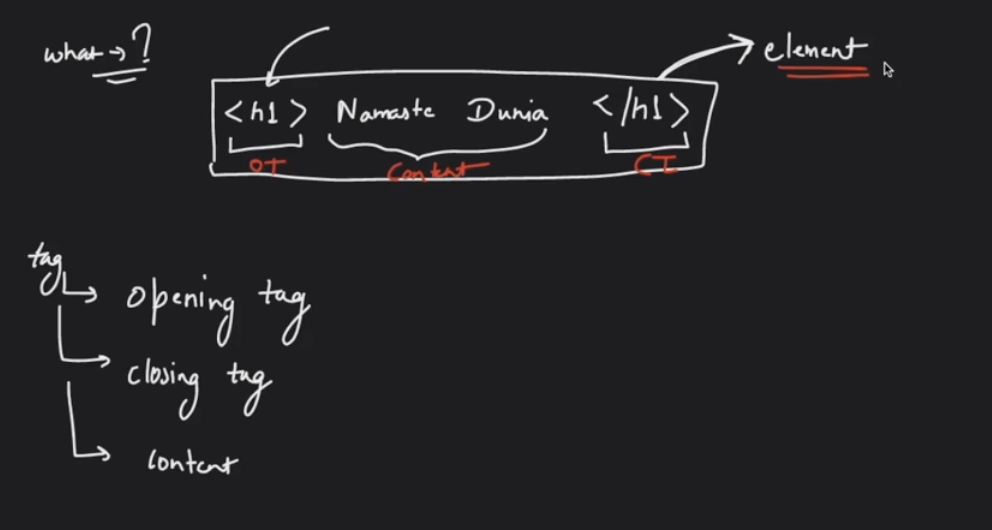 what → ?
element
<h1> Namaste Dunia </h1>
OT Content CT
tag
opening tag
closing tag
content